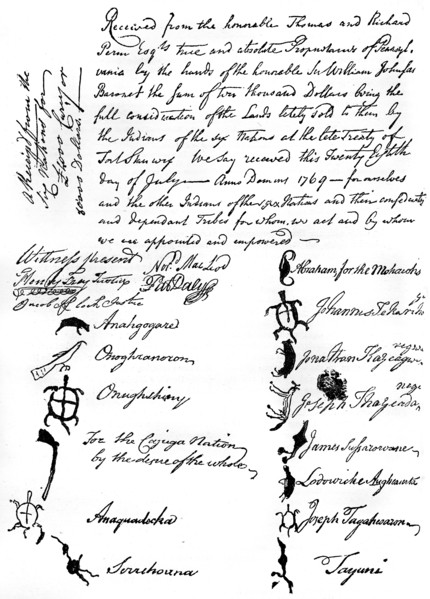 Received from the honorable Thomas and Richard
Penn Esqrs true and absolute Proprietaries of Pensyl
vania by the hands of the honorable Sir William Johnson
Baronet the Sum of ten thousand Dollars being the
full consideration of the Lands lately sold to them by
the Indians of the six Nations at the late Treaty of
Fort Stanwix We say received this Twenty Eighth
day of July — Anno Domini 1769 — for ourselves
and the other Indians of the six Nations and their confederates
and dependant Tribes for whom we act and by whom
we are appointed and empowered —
A Receipt from the
Six Nations for
Dollars.
Witness present
Justice
Justice
Norn. MacLeod
Abraham for the Mohawks
Johannes
Anahgogare
Onoghranoron
Jonathan
Joseph
Onughshiny
For the Cajuga Nation
by the desire of the whole
James
Lodowicke
Anaquadecka
Joseph
Sorrehoana
Tayuni